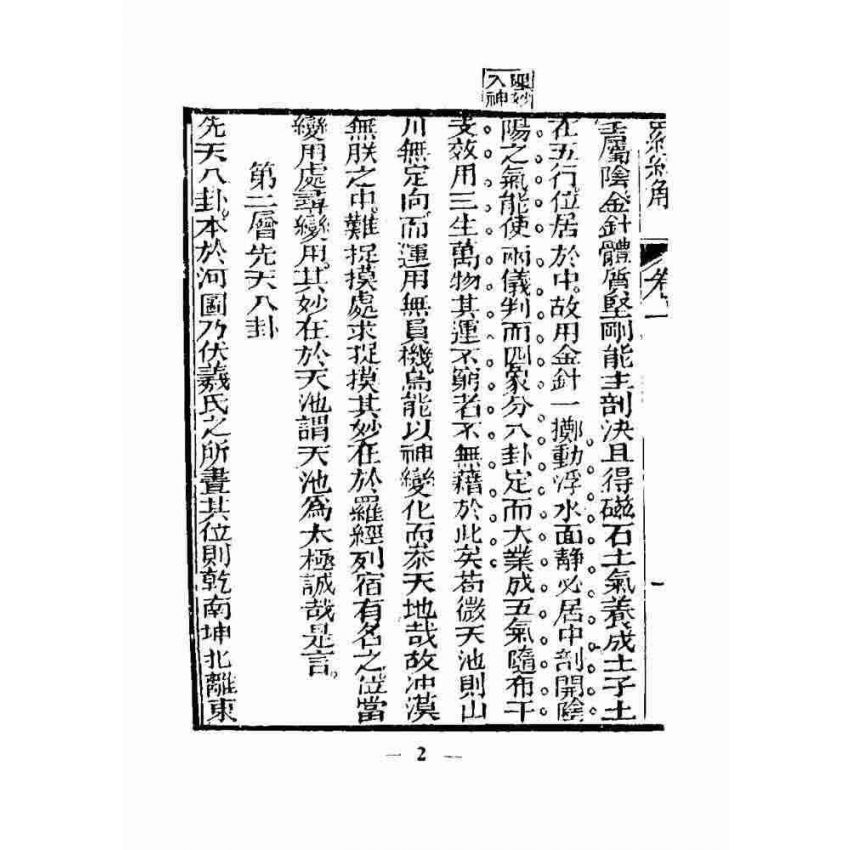 理妙
入神
羅經解 卷一 一
主屬陰金針體質堅剛能主剖決且得磁石土氣養成土子土
在五行位居於中故用金針一擲動浮水面靜必居中剖開陰
陽之氣能使兩儀判而四象分八卦定而大業成五氣隨布干
支效用三生萬物其運不窮者不無藉於此矣苟微天池則山
川無定向而運用無員機烏能以神變化而叅天地哉故冲漠
無朕之中難捉摸處求捉摸其妙在於羅經列宿有名之位當
變用處尋變用其妙在於天池謂天池為太極誠哉是言
第二層先天八卦
先天八卦本於河圖乃伏羲氏之所畫其位則乾南坤北離東
— 2 —